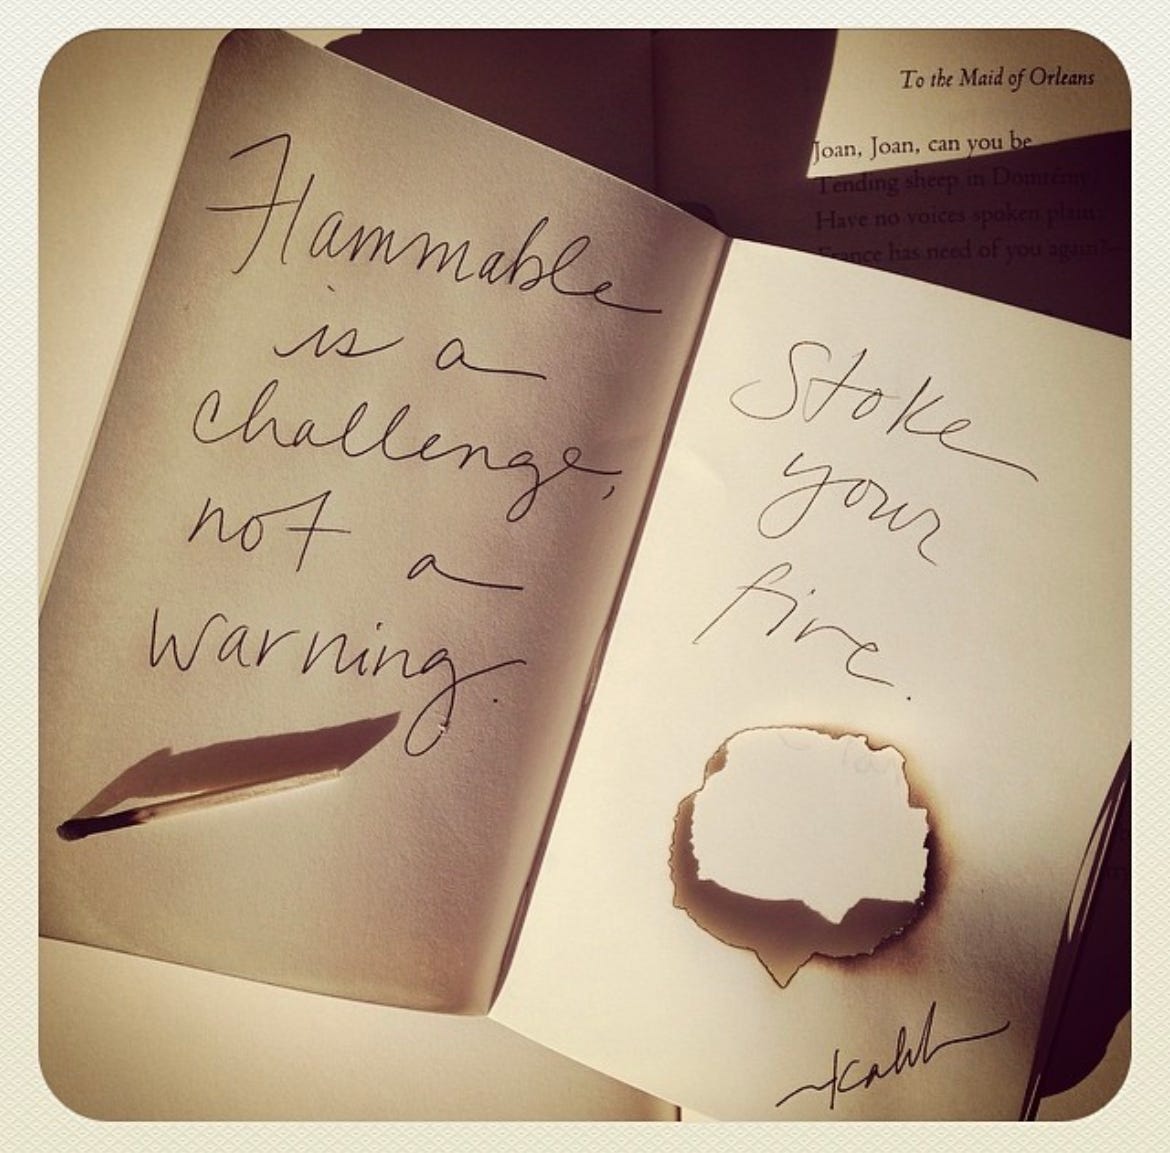 Flammable
is a
challenge,
not a
warning.
Stoke
your
fire.
To the Maid of Orleans
Joan, Joan, can you be
Tending sheep in Domrémy?
Have no voices spoken plain:
France has need of you again?—